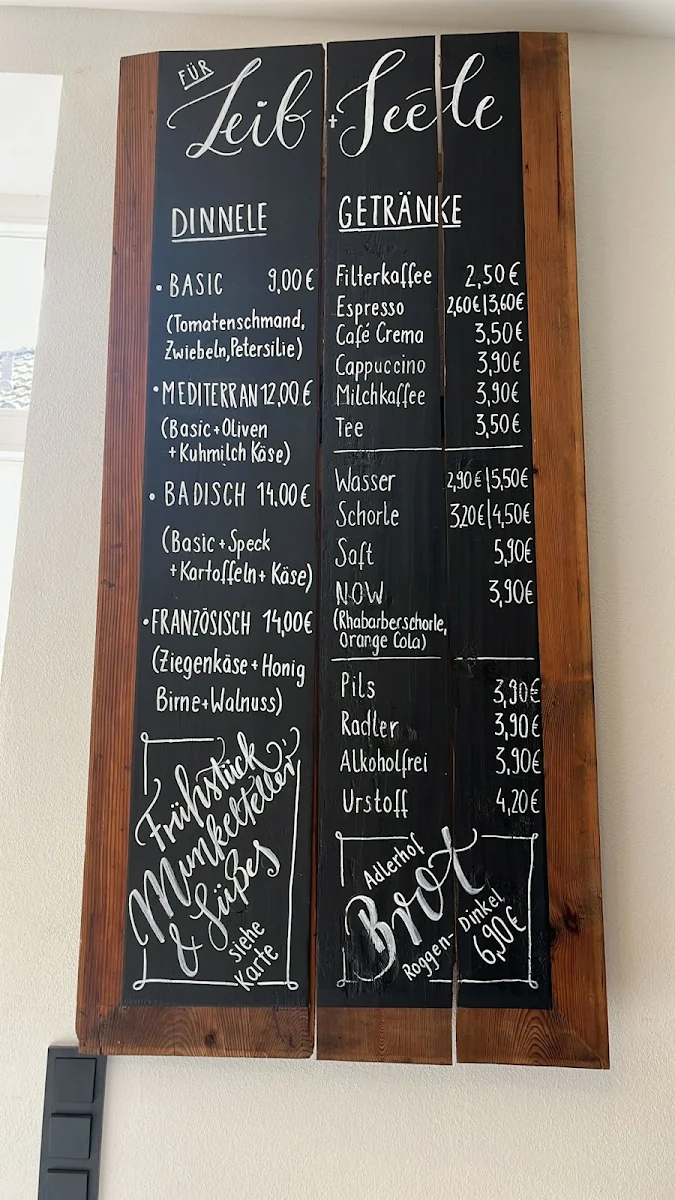 FÜR
Leib + Seele
DINNELE
• BASIC 9,00€
(Tomatenschmand,
Zwiebeln, Petersilie)
• MEDITERRAN 12,00€
(Basic + Oliven
+ Kuhmilch Käse)
• BADISCH 14,00€
(Basic + Speck
+ Kartoffeln + Käse)
• FRANZÖSISCH 14,00€
(Ziegenkäse + Honig
Birne + Walnuss)
Frühstück
Munkelteller
& Süßes
siehe
Karte
GETRÄNKE
Filterkaffee 2,50€
Espresso 2,60€|3,60€
Café Crema 3,50€
Cappuccino 3,90€
Milchkaffee 3,90€
Tee 3,50€
Wasser 2,90€|5,50€
Schorle 3,20€|4,50€
Saft 5,90€
NOW 3,90€
(Rhabarberschorle,
Orange Cola)
Pils 3,90€
Radler 3,90€
Alkoholfrei 3,90€
Urstoff 4,20€
Adlerhof
Brot
Roggen- Dinkel
6,90€